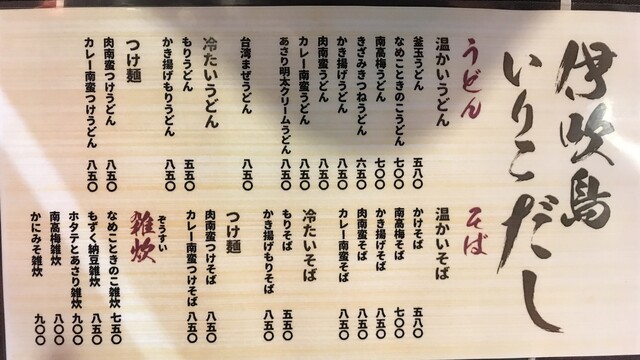 伊吹島
いりこだし
うどん
温かいうどん
釜玉うどん 五八〇
なめこときのこうどん 七〇〇
南高梅うどん 七〇〇
きざみきつねうどん 六五〇
かき揚げうどん 八五〇
肉南蛮うどん 八五〇
カレー南蛮うどん 八五〇
あさり明太クリームうどん 八五〇
台湾まぜうどん 八五〇
冷たいうどん
もりうどん 五五〇
かき揚げもりうどん 八五〇
つけ麺
肉南蛮つけうどん 八五〇
カレー南蛮つけうどん 八五〇
そば
温かいそば
かけそば 五八〇
南高梅そば 七〇〇
かき揚げそば 八五〇
肉南蛮そば 八五〇
カレー南蛮そば 八五〇
冷たいそば
もりそば 五五〇
かき揚げもりそば 八五〇
つけ麺
肉南蛮つけそば 八五〇
カレー南蛮つけそば 八五〇
雑炊
ぞうすい
なめこときのこ雑炊 七五〇
もずく納豆雑炊 八五〇
ホタテとあさり雑炊 九〇〇
南高梅雑炊 八〇〇
かにみそ雑炊 九〇〇